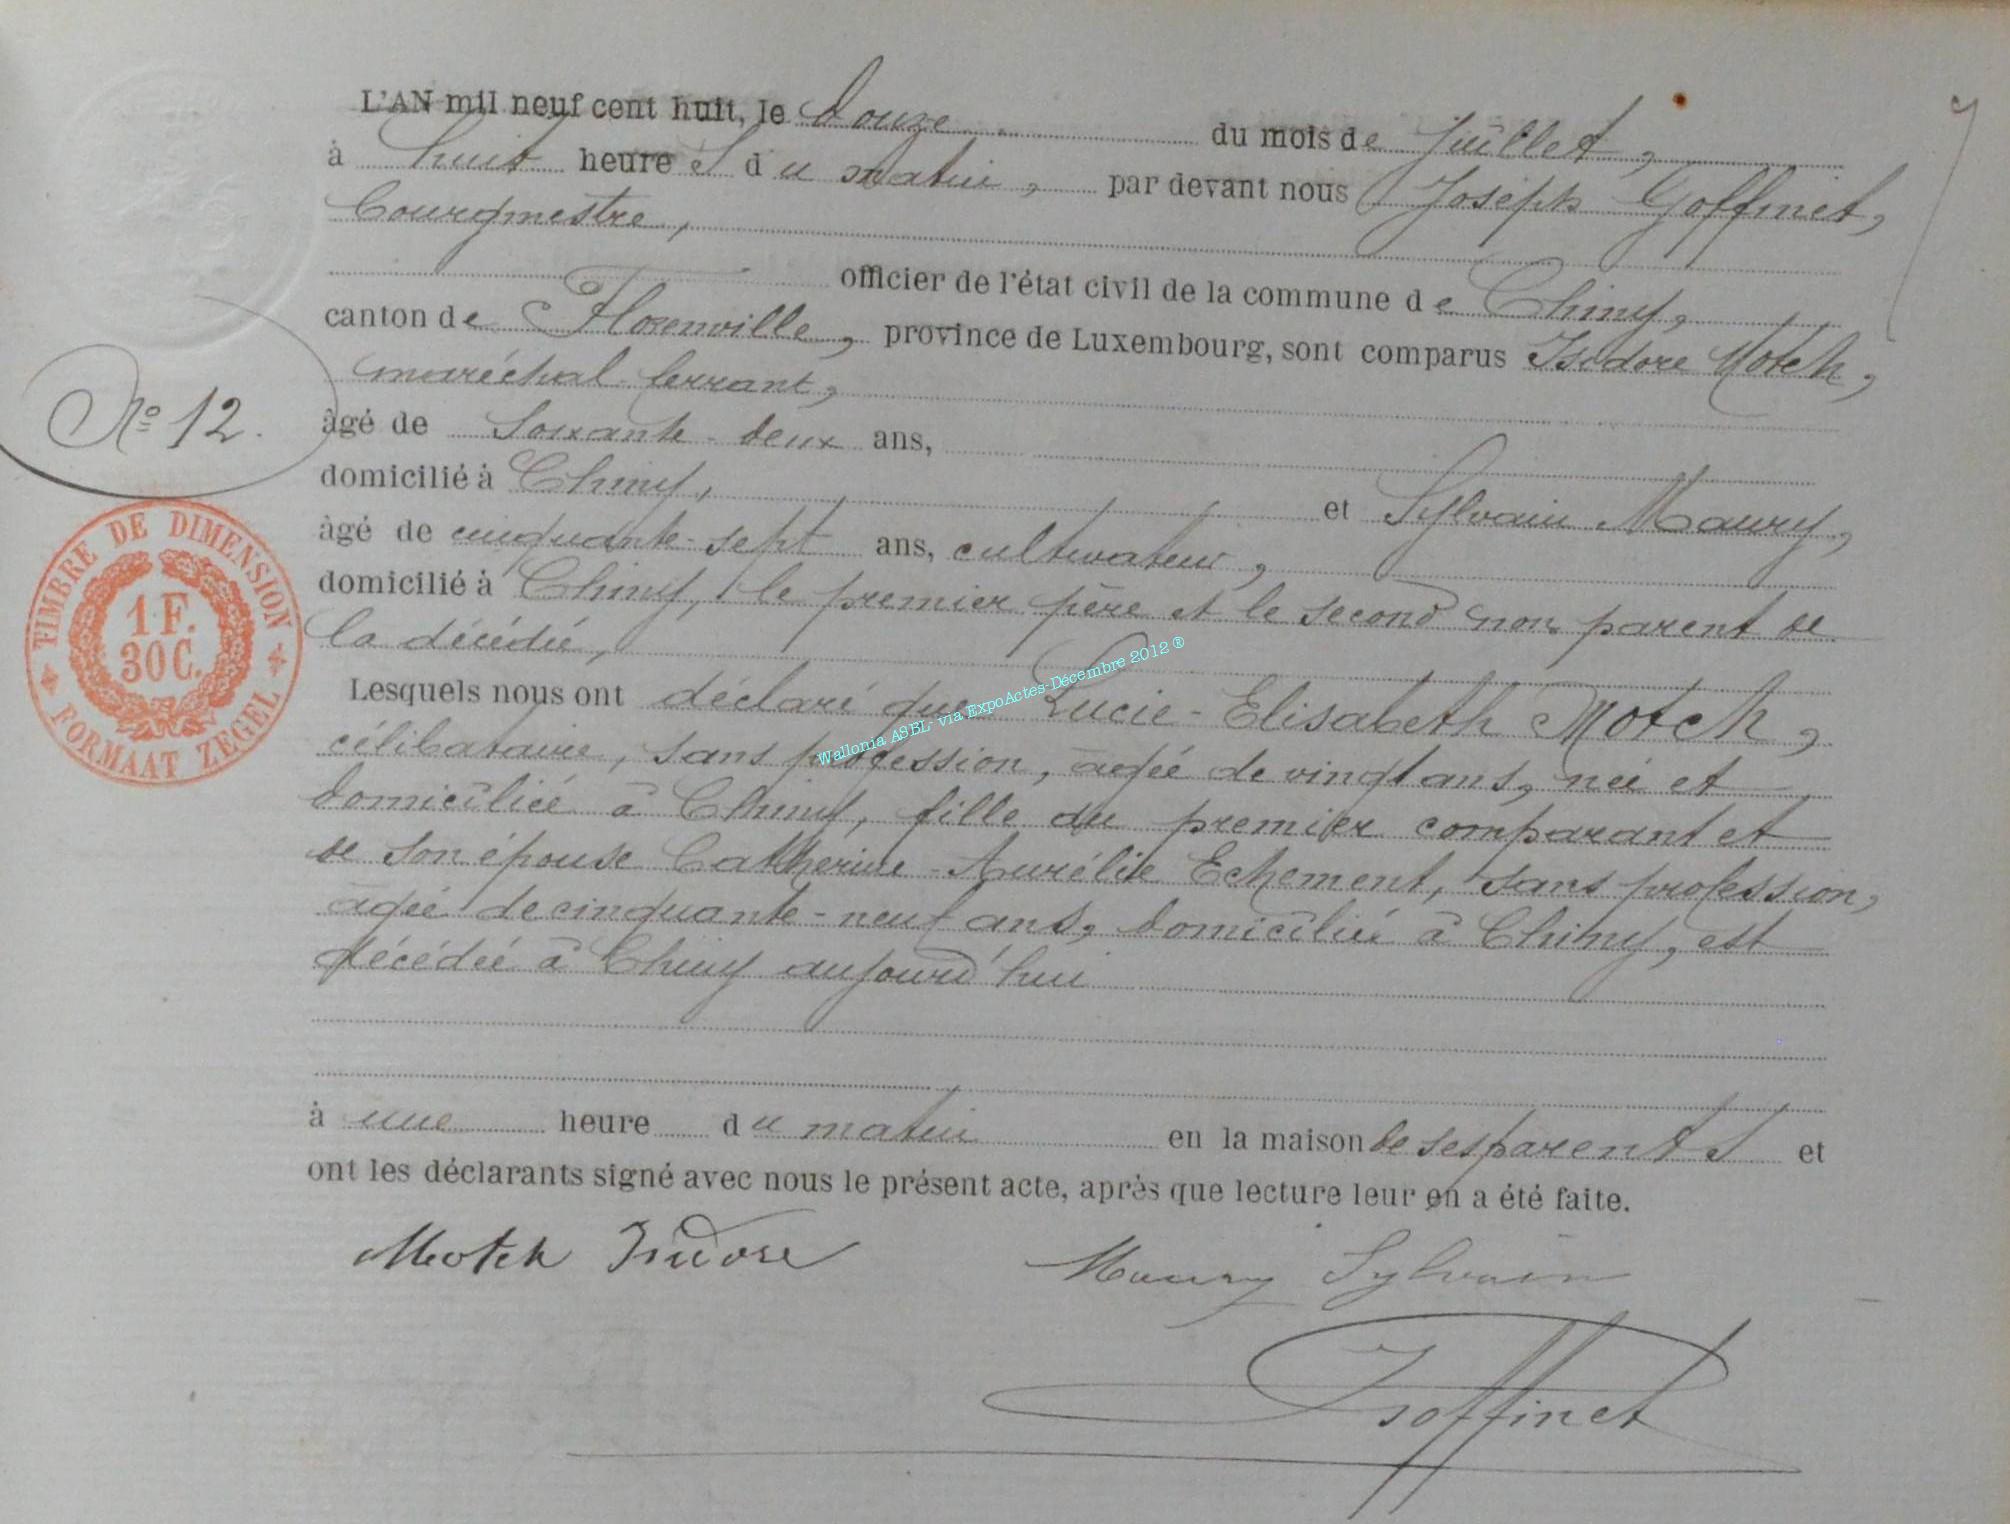 L'AN mil neuf cent huit, le douze du mois de Juillet,
à huit heures du matin, par devant nous Joseph Goffinet,
bourgmestre,
officier de l'état civil de la commune de Chiny,
canton de Florenville, province de Luxembourg, sont comparus Isidore Motch,
maréchal-ferrant,
âgé de soixante-deux ans,
domicilié à Chiny, et Sylvain Maury,
âgé de cinquante-sept ans, cultivateur,
domicilié à Chiny, le premier père et le second non parent de
la décédée,
Lesquels nous ont déclaré que Lucie-Elisabeth Motch,
célibataire, sans profession, âgée de vingt ans, née et
domiciliée à Chiny, fille du premier comparant et
de son épouse Catherine-Aurélie Echement, sans profession,
âgée de cinquante-neuf ans, domiciliée à Chiny, est
décédée à Chiny aujourd'hui
à une heure du matin en la maison de ses parents et
ont les déclarants signé avec nous le présent acte, après que lecture leur en a été faite.
Motch Isidore Maury Sylvain
Goffinet
No 12.
TIMBRE DE DIMENSION
1 F.
30 C.
FORMAAT ZEGEL
Wallonia ASBL- via ExpoActes-Décembre 2012 ®